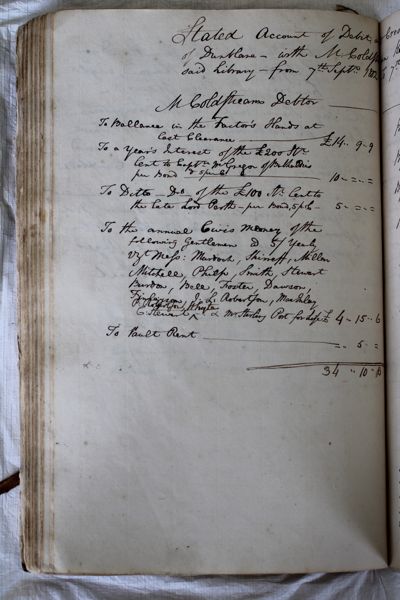 Stated Account of Debit
of Dunblane - with Mr Coldstream
said Library - from 7th Septr.
Mr Coldstream Debtor
To Ballance in the Factor's Hands at
last Clearance £14 .. 9 - 9
To a year's Interest of the £200 Str.
lent to Captn. McGregor of
per Bond 10 - = - =
To Ditto - Do. of the £100 Str. lent to
the late Lord Perth - per Bond, 5 pC 5 - = - =
To the annual Civis money of the
following Gentlemen @ 5/ Yearly
Vizt. Messrs: Murdoch, Shirreff, Millar
Mitchell, Philp, Smith, Stewart
Burdon, Bell, Foster, Dawson,
Finlayson, J. L. Robertson, Macklay
& Mr Stirling Port for 4 - 15 .. 6
To Vault Rent = 5 - =
34 .. 10